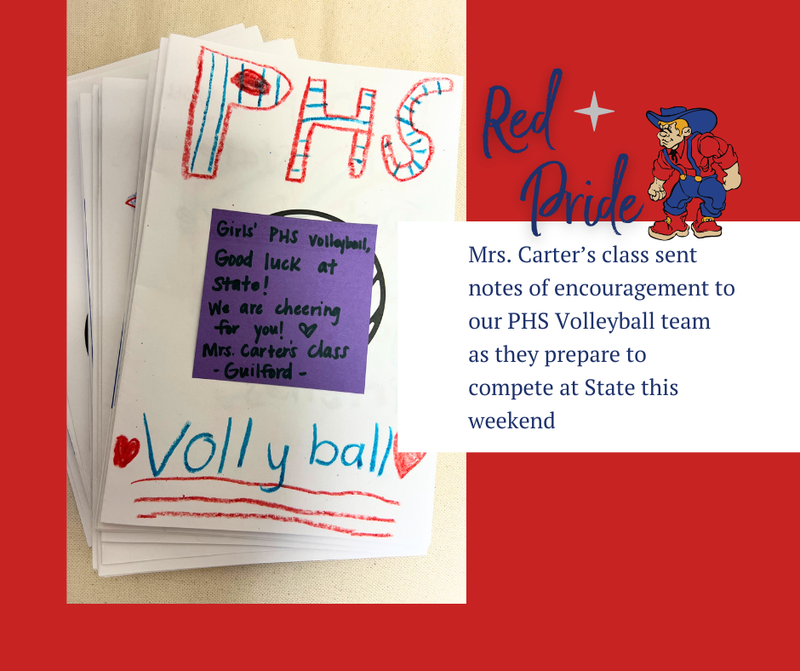 PHS
Girls' PHS Volleyball,
Good luck at
State!
We are cheering
for you! ♡
Mrs. Carter's Class
- Guilford -
Volly ball
Red
Pride
Mrs. Carter’s class sent
notes of encouragement to
our PHS Volleyball team
as they prepare to
compete at State this
weekend